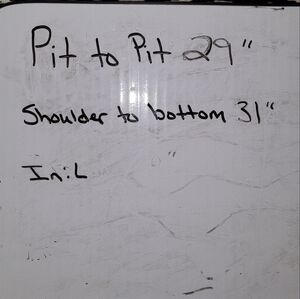 Pit to Pit 29"
Shoulder to bottom 31"
In:L "